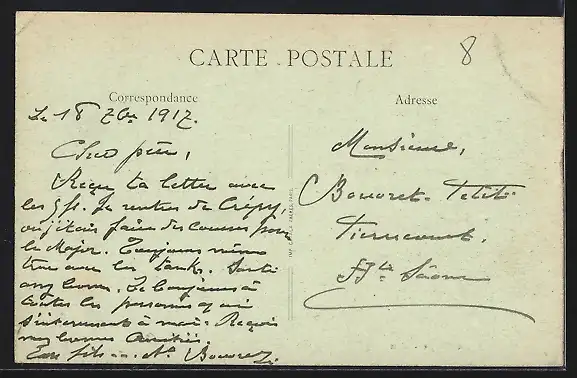 8
CARTE POSTALE
Correspondance
Adresse
Le 18 7bre 1917.
Cher père,
Reçu ta lettre avec
les 5 f. Je rentre de Crépy,
où j'étais faire des courses pour
le Major. Toujours même
avec les tanks. Santé
bonne. Le bonjour à
toutes les personnes qui
s'intéressent à moi. Reçois
mes bonnes amitiés.
Ton fils Bouvret
Monsieur,
Bouvret-Petit
Hte Saône